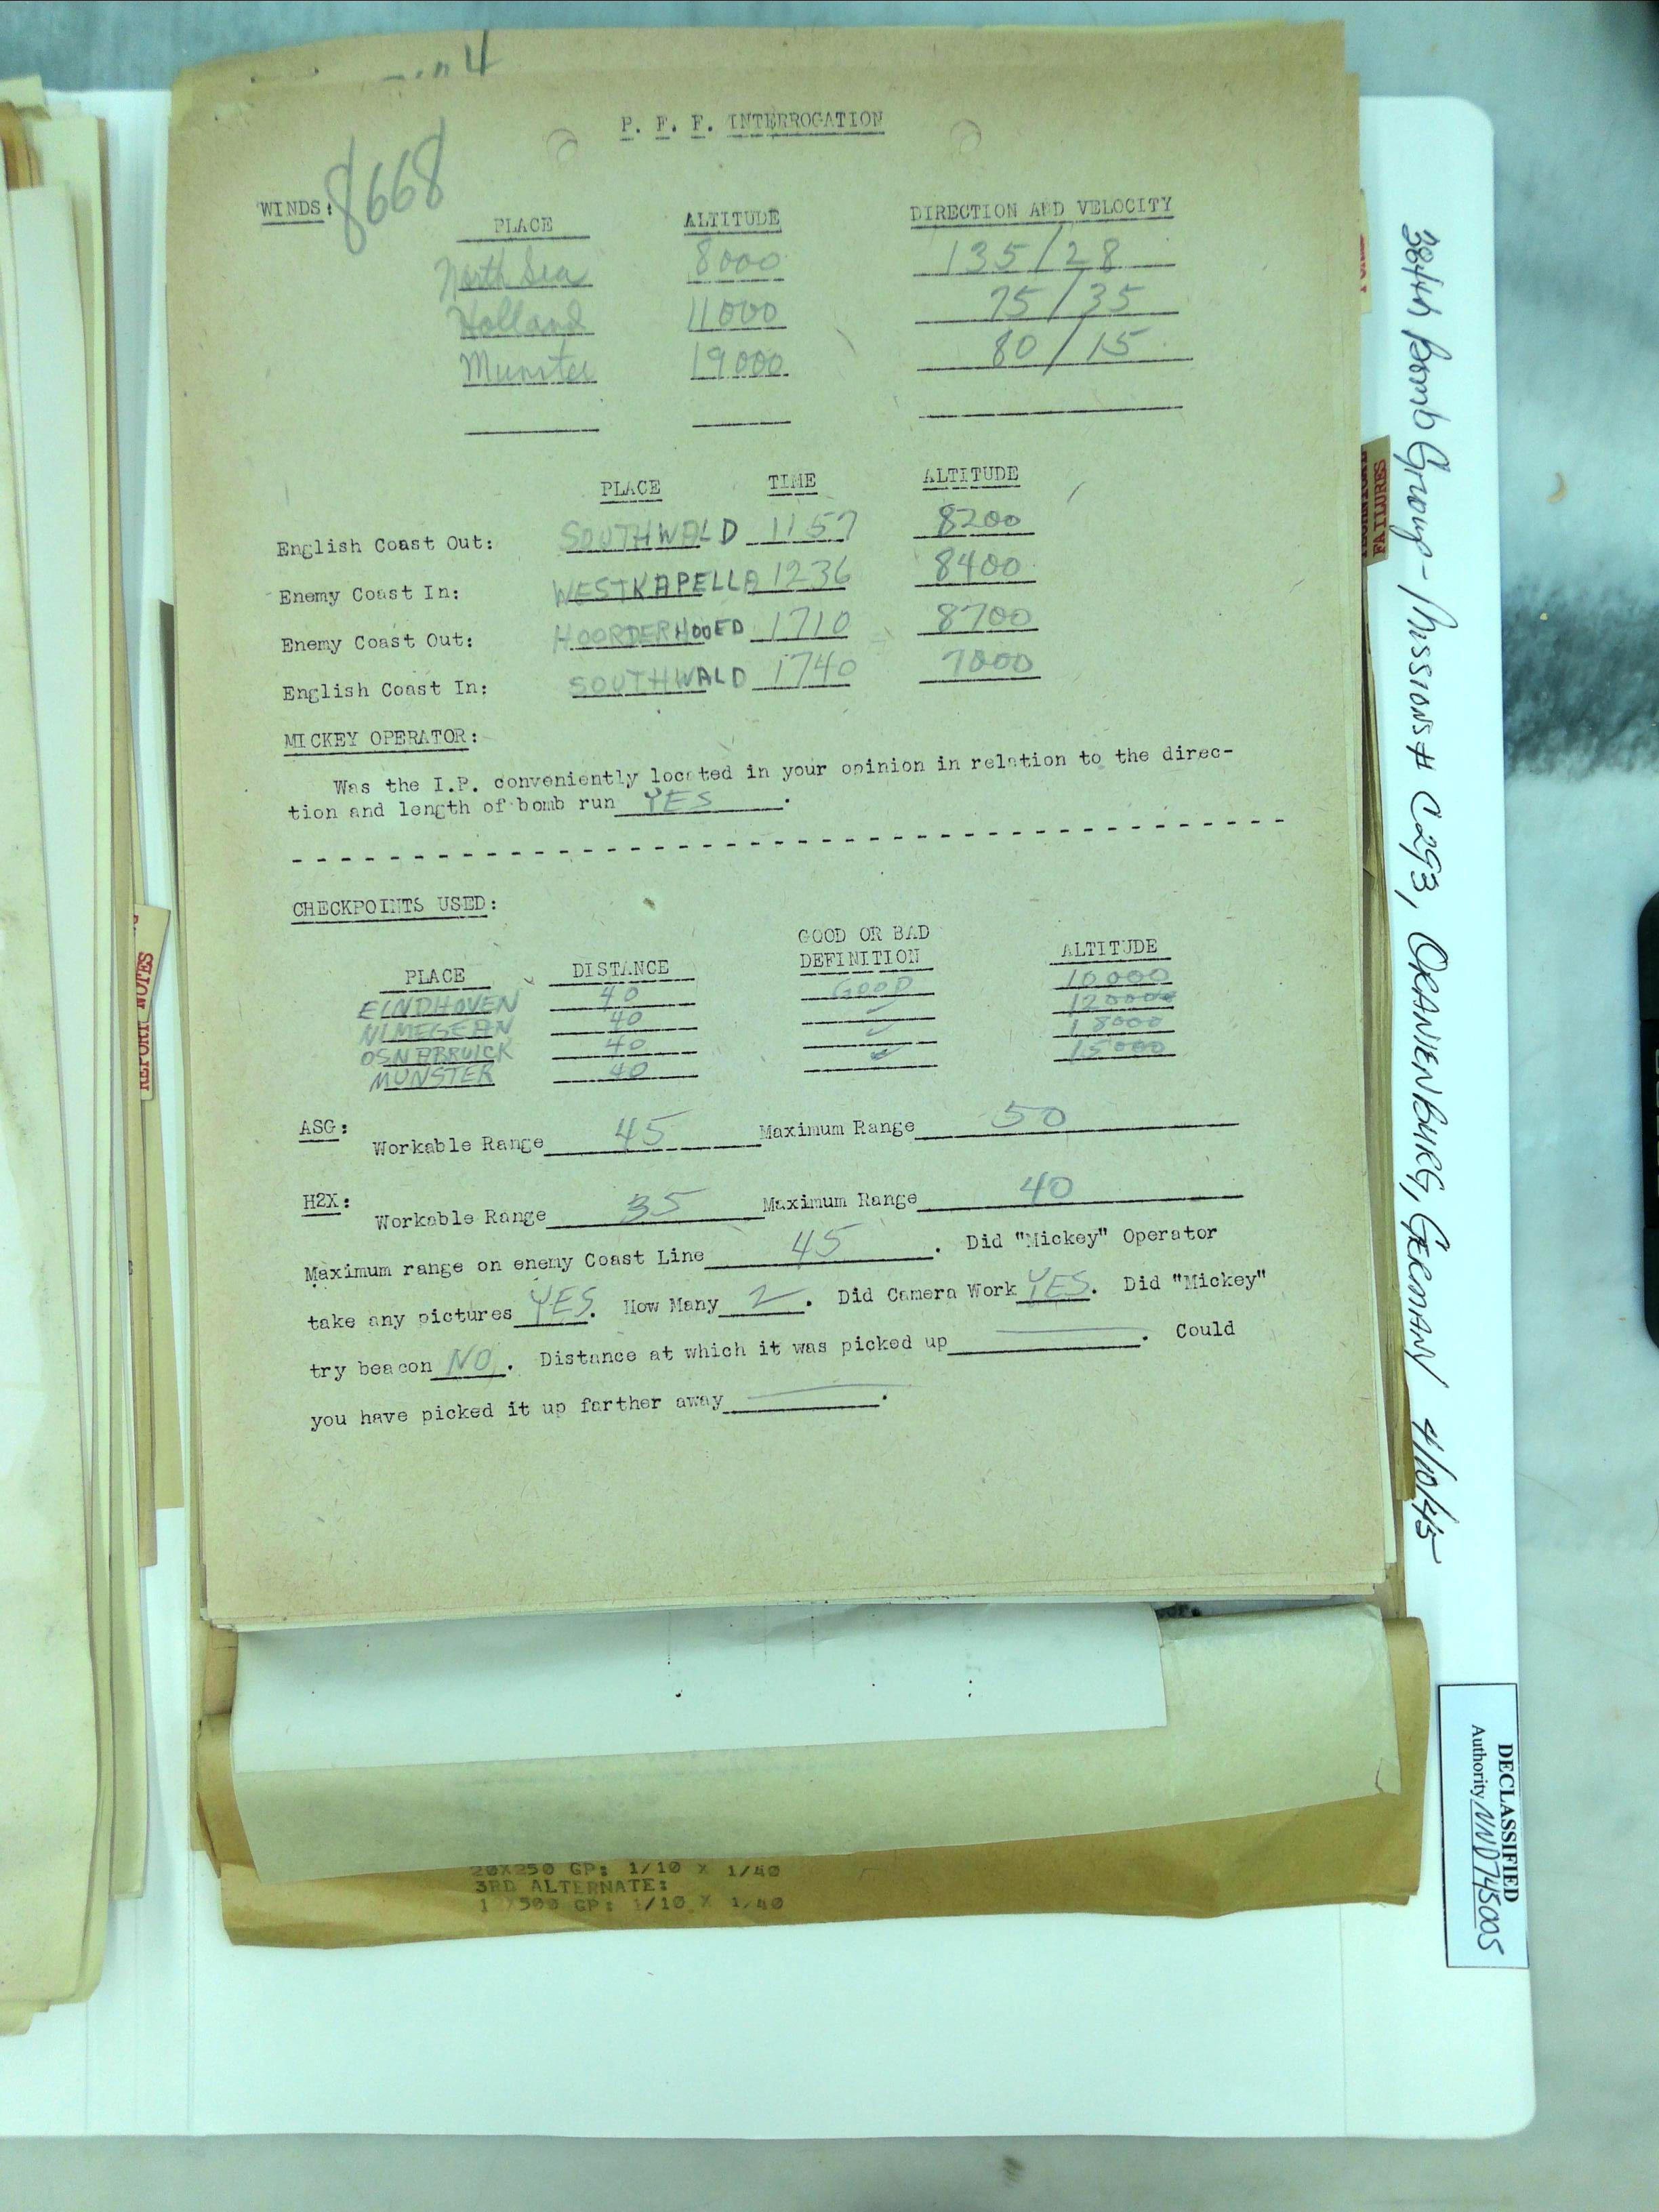 4
P. F. F. INTERROGATION
8668
WINDS:
PLACE ALTITUDE DIRECTION AND VELOCITY
North Sea 8000 135/28
Holland 11000 75/35
Munster 19000 80/15
PLACE TIME ALTITUDE
English Coast Out: SOUTHWALD 1157 8200
Enemy Coast In: WESTKAPELLA 1236 8400
Enemy Coast Out: 1710 8700
English Coast In: SOUTHWALD 1740 7000
MICKEY OPERATOR:
Was the I.P. conveniently located in your opinion in relation to the direc-
tion and length of bomb run YES.
CHECKPOINTS USED:
GOOD OR BAD
PLACE DISTANCE DEFINITION ALTITUDE
EINDHOVEN 40 GOOD 10000
40 ✓ 12000
40 ✓ 18000
MUNSTER 40 ✓ 15000
ASG: Workable Range 45 Maximum Range 50
H2X: Workable Range 35 Maximum Range 40
Maximum range on enemy Coast Line 45. Did "Mickey" Operator
take any pictures YES. How Many 2. Did Camera Work YES. Did "Mickey"
try beacon NO. Distance at which it was picked up —. Could
you have picked it up farther away —.
20X250 GP: 1/10 X 1/40
3RD ALTERNATE:
1 X500 GP: 1/10 X 1/40
REPORT NOTES
FAILURES
384th Bomb Group - Missions # C293, ORANIENBURG, GERMANY 4/10/45
DECLASSIFIED
Authority NND745005